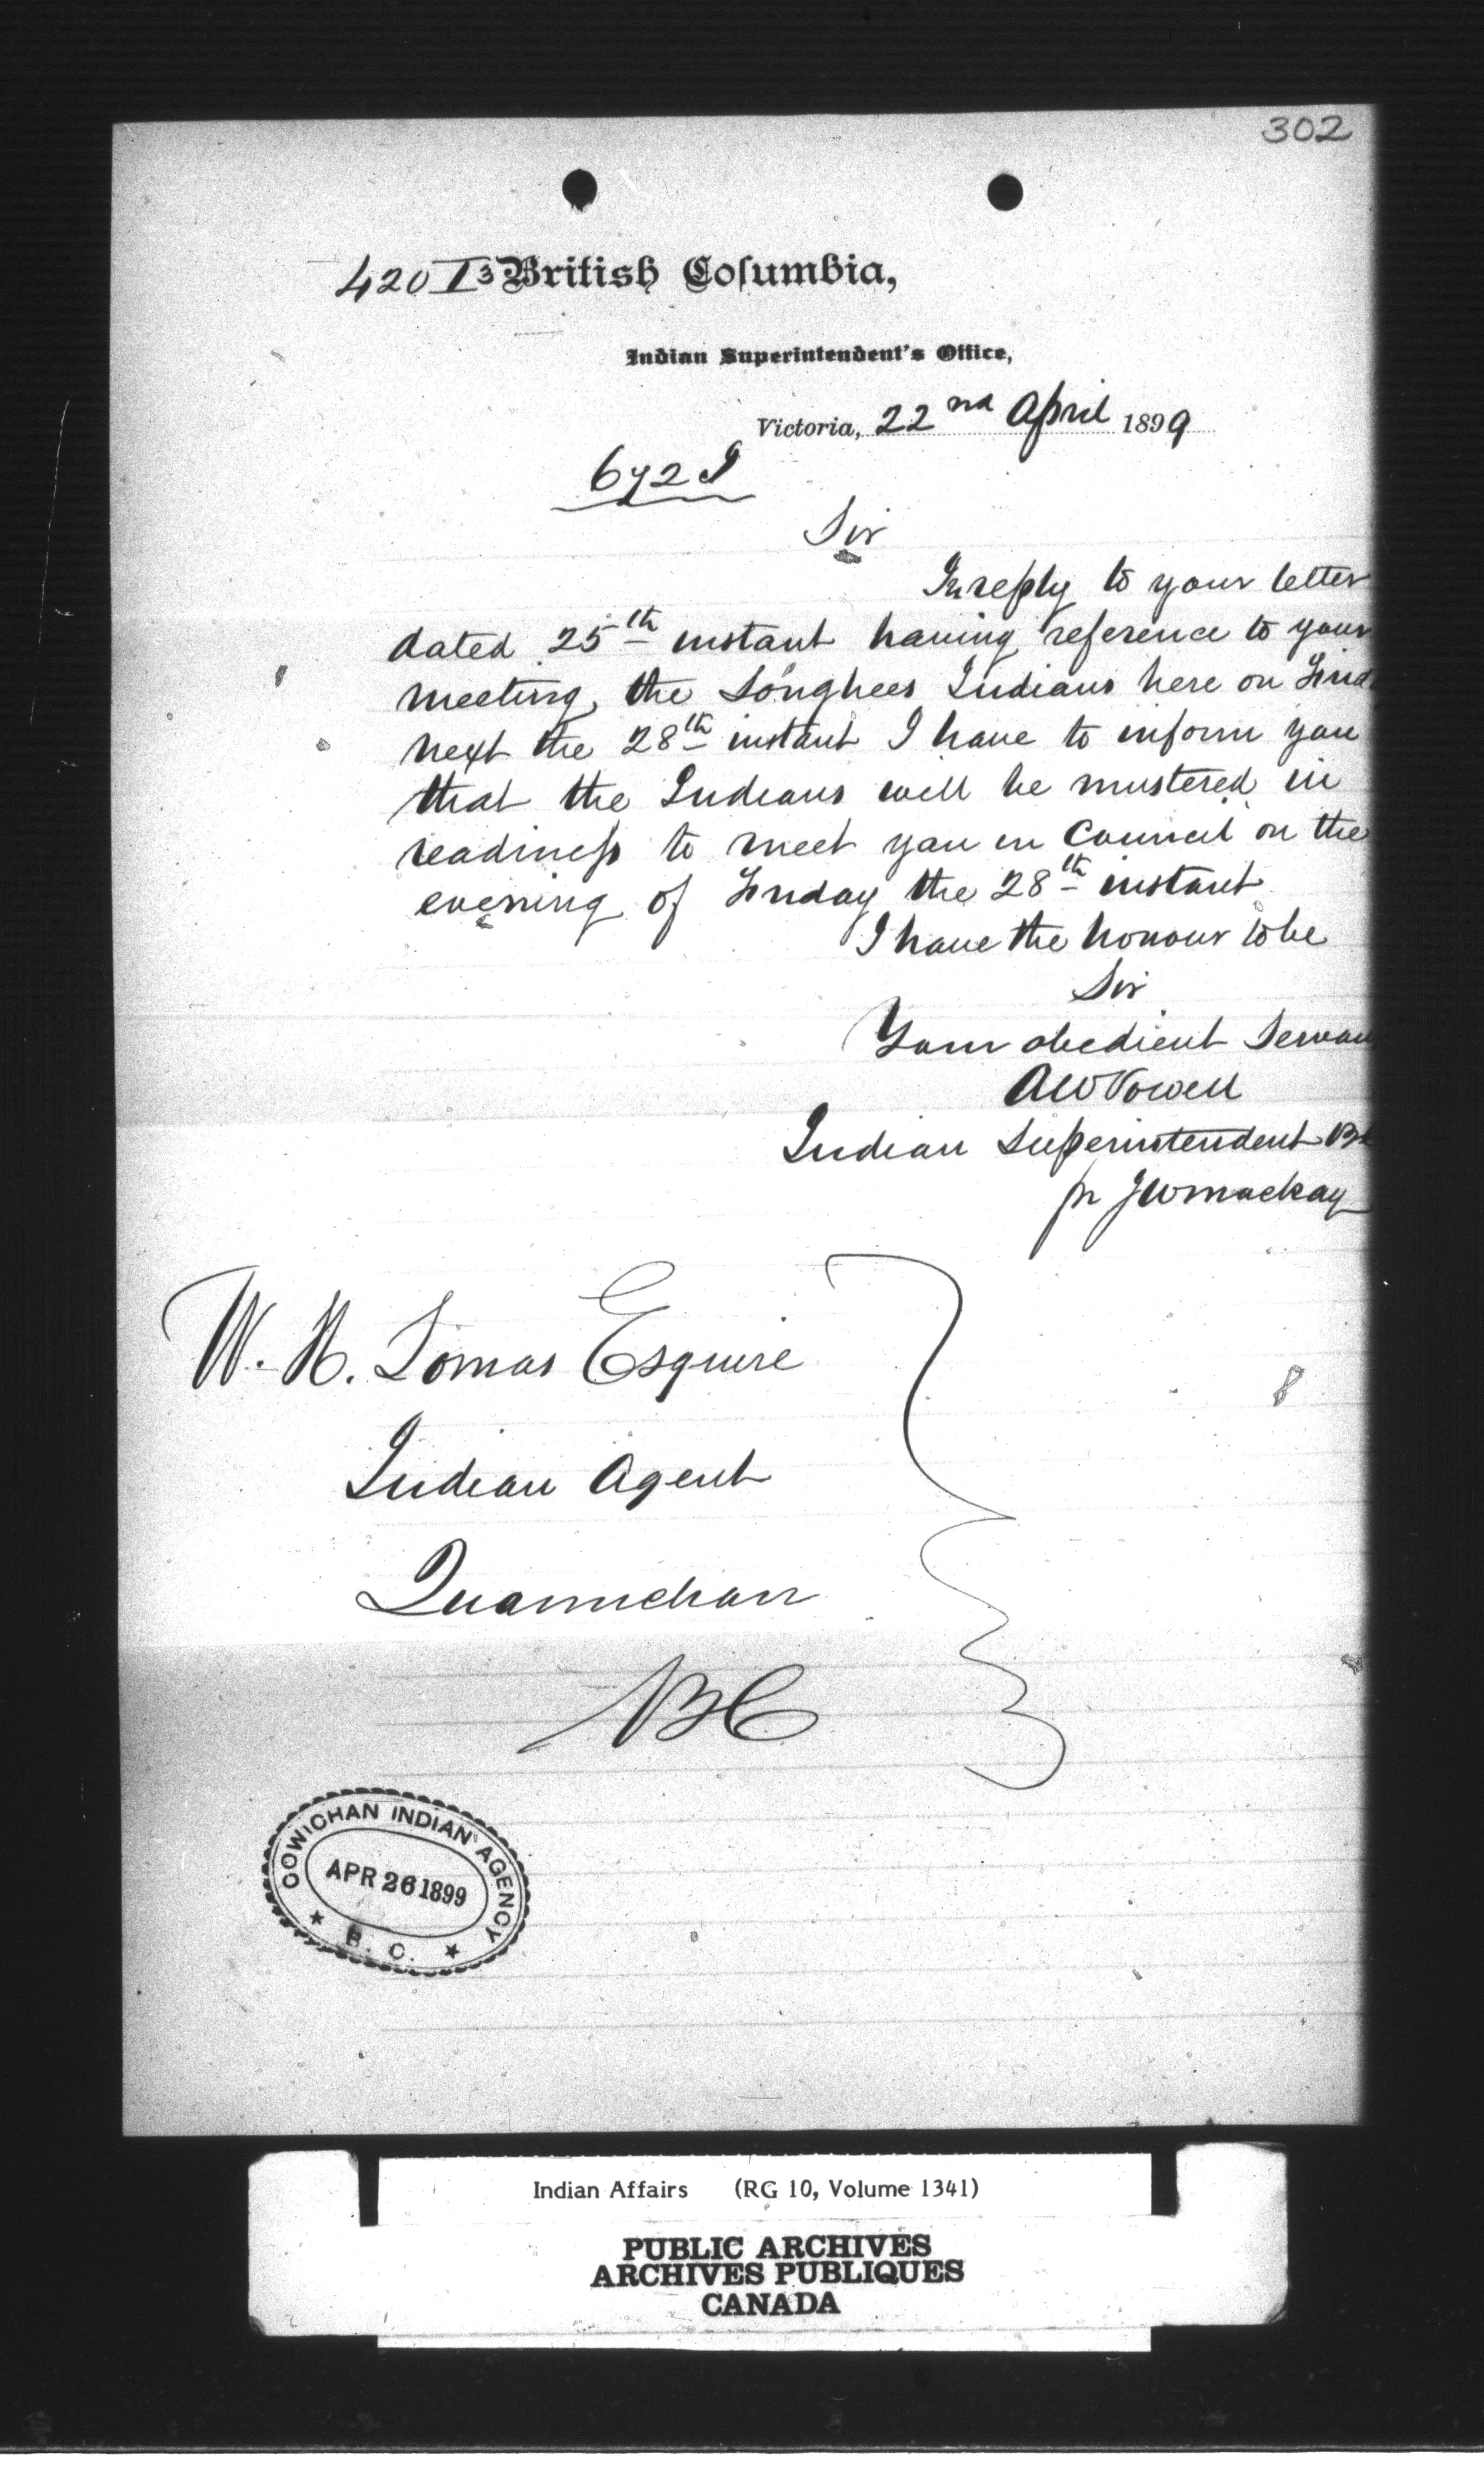 302
420 I3 British Columbia,
Indian Superintendent's Office,
Victoria, 22nd April 1899
Sir
In reply to your letter
dated 25th instant having reference to your
meeting the Songhees Indians here on Frid
next the 28th instant I have to inform you
that the Indians will be mustered in
readiness to meet you in Council on the
evening of Friday the 28th instant
I have the honour to be
Sir
Your obedient Servan
AW Vowell
Indian Superintendent B
pr JW Mackay
W. H. Lomas Esquire
Indian Agent
Quamichan
BC
COWICHAN INDIAN AGENCY
APR 26 1899
B. C.
Indian Affairs (RG 10, Volume 1341)
PUBLIC ARCHIVES
ARCHIVES PUBLIQUES
CANADA